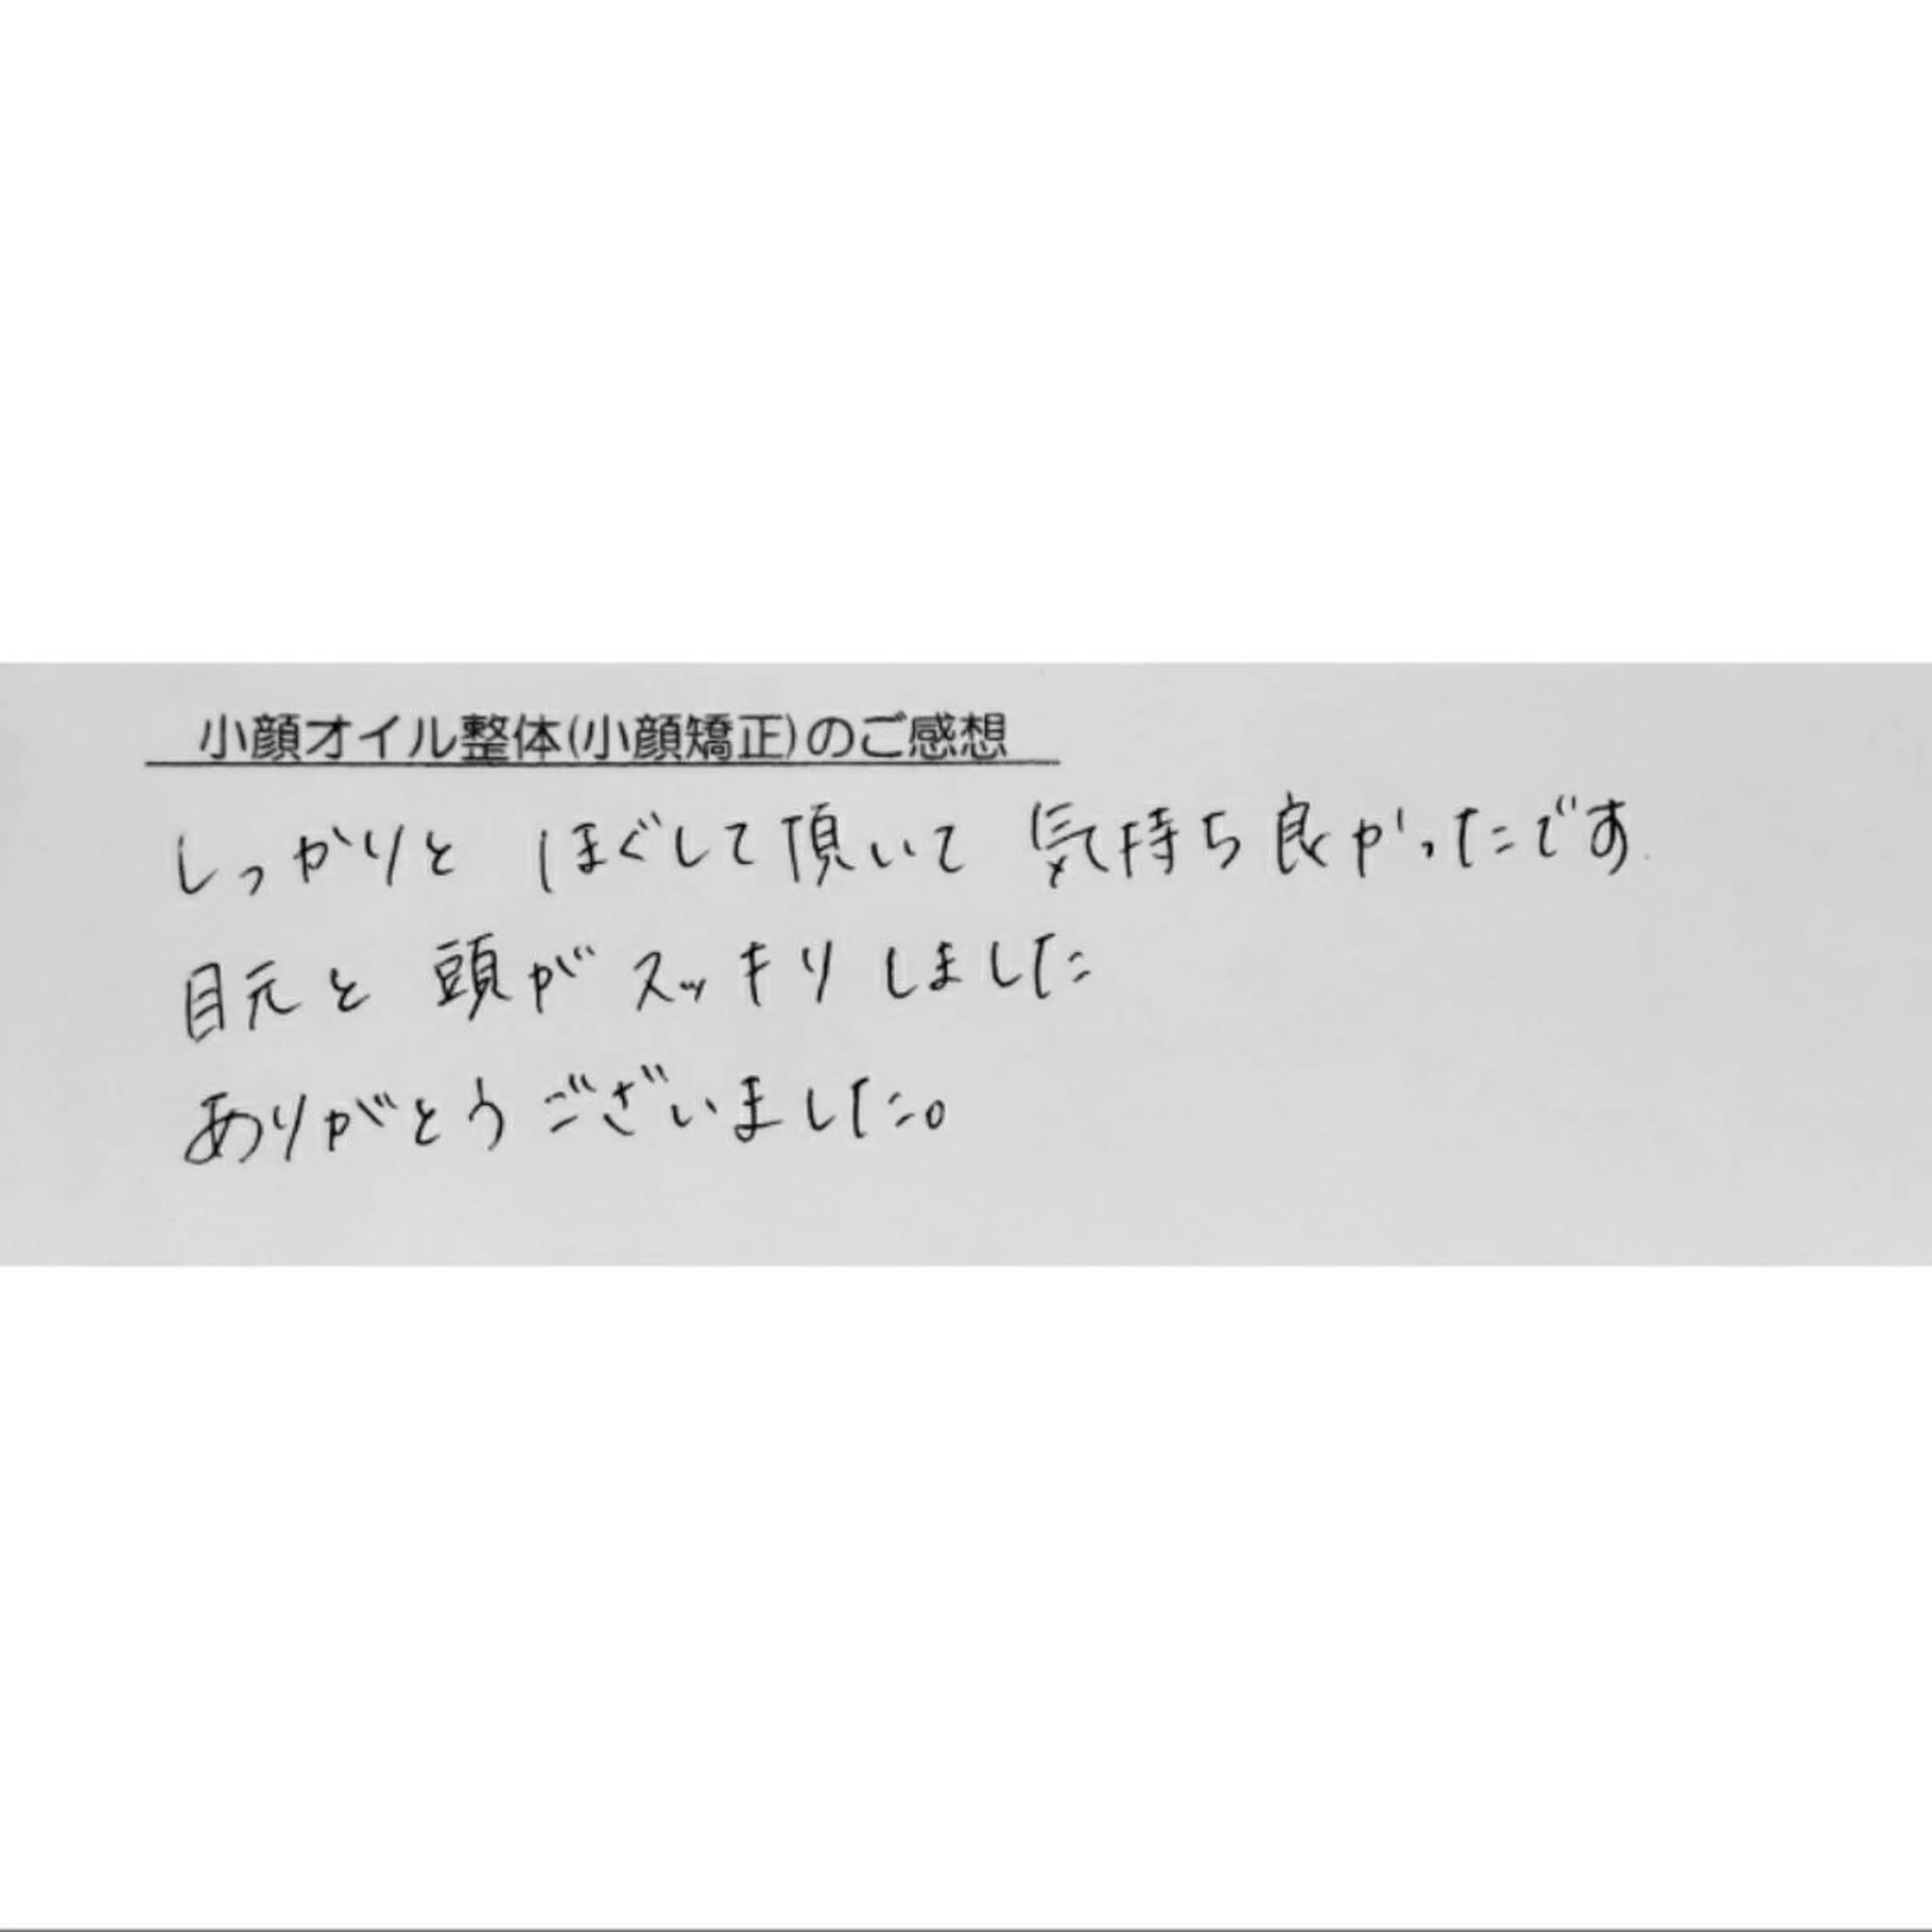 小顔オイル整体(小顔矯正)のご感想
しっかりと ほぐして頂いて 気持ち良かったです
目元と 頭が スッキリ しました
ありがとう ございました。